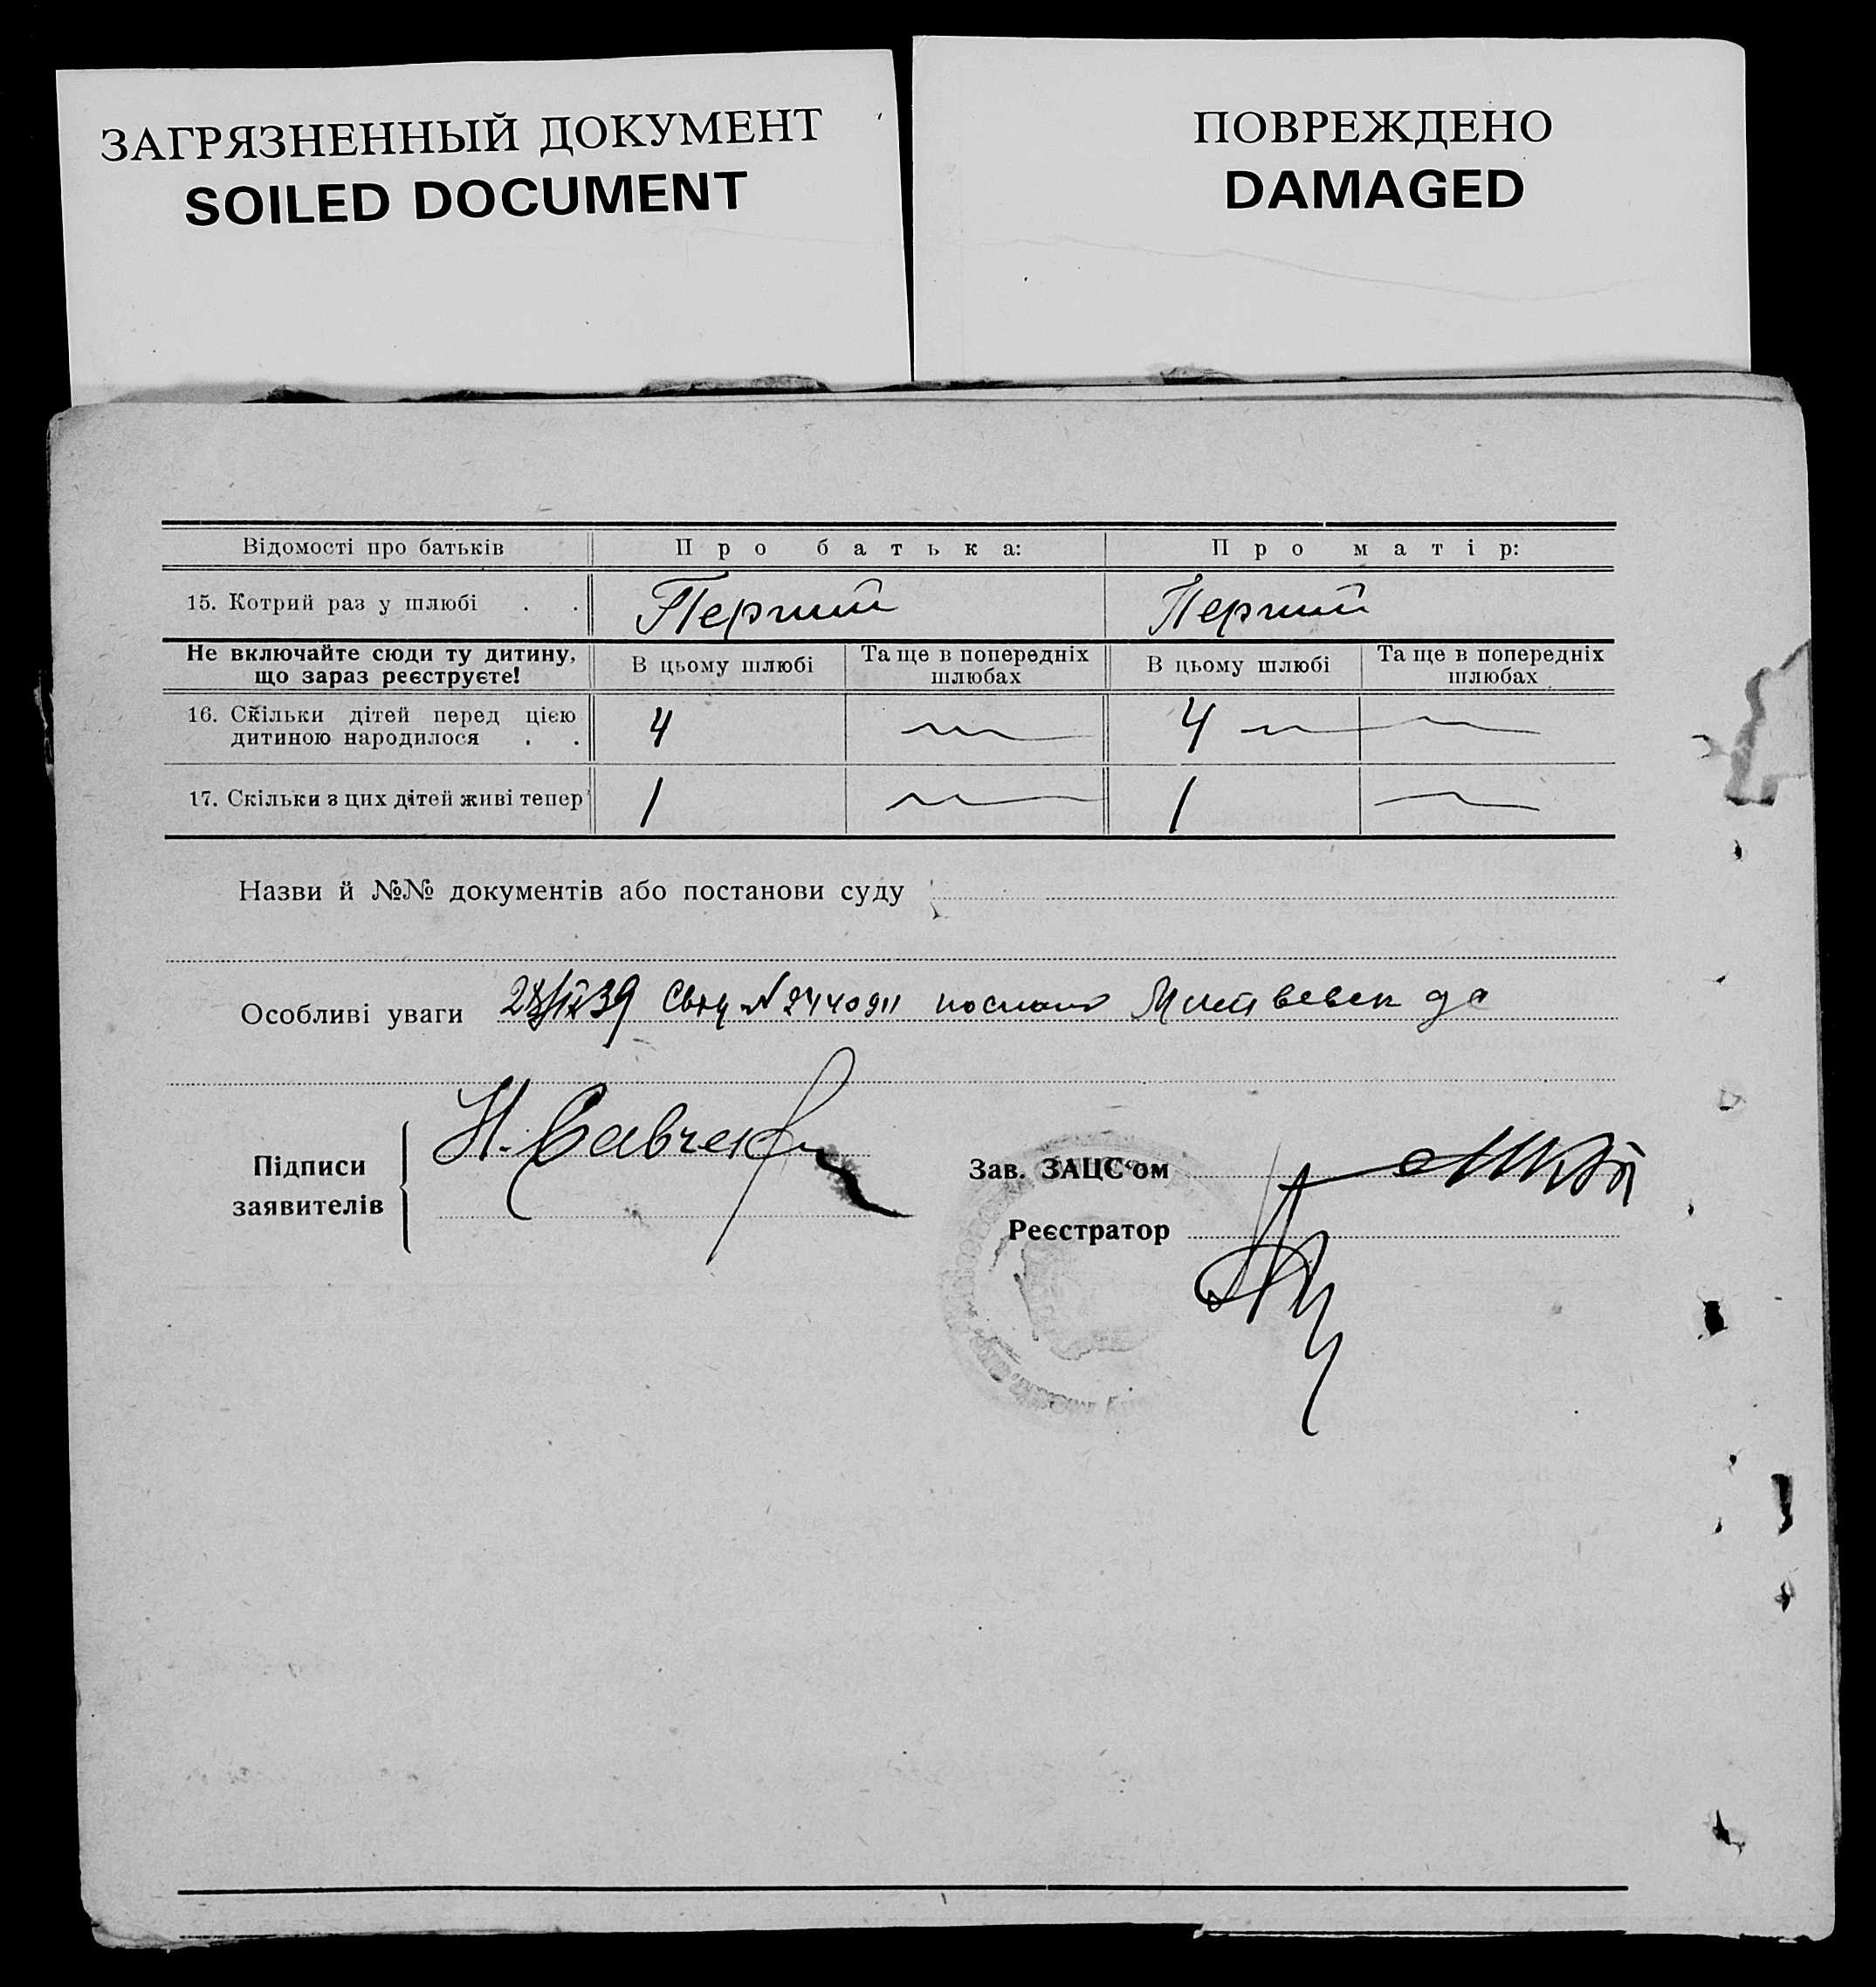 ЗАГРЯЗНЕННЫЙ ДОКУМЕНТ
SOILED DOCUMENT
ПОВРЕЖДЕНО
DAMAGED
Відомості про батьків Про батька: Про матір:
15. Котрий раз у шлюбі . . Перший Перший
Не включайте сюди ту дитину, що зараз реєструєте! В цьому шлюбі Та ще в попередніх шлюбах В цьому шлюбі Та ще в попередніх шлюбах
16. Скільки дітей перед цією дитиною народилося . . 4 — 4 — —
17. Скільки з цих дітей живі тепер 1 — 1 —
Назви й №№ документів або постанови суду
Особливі уваги 39 №2440911 послано
Підписи заявителів Н. Савченко
Зав. ЗАЦС'ом
Реєстратор